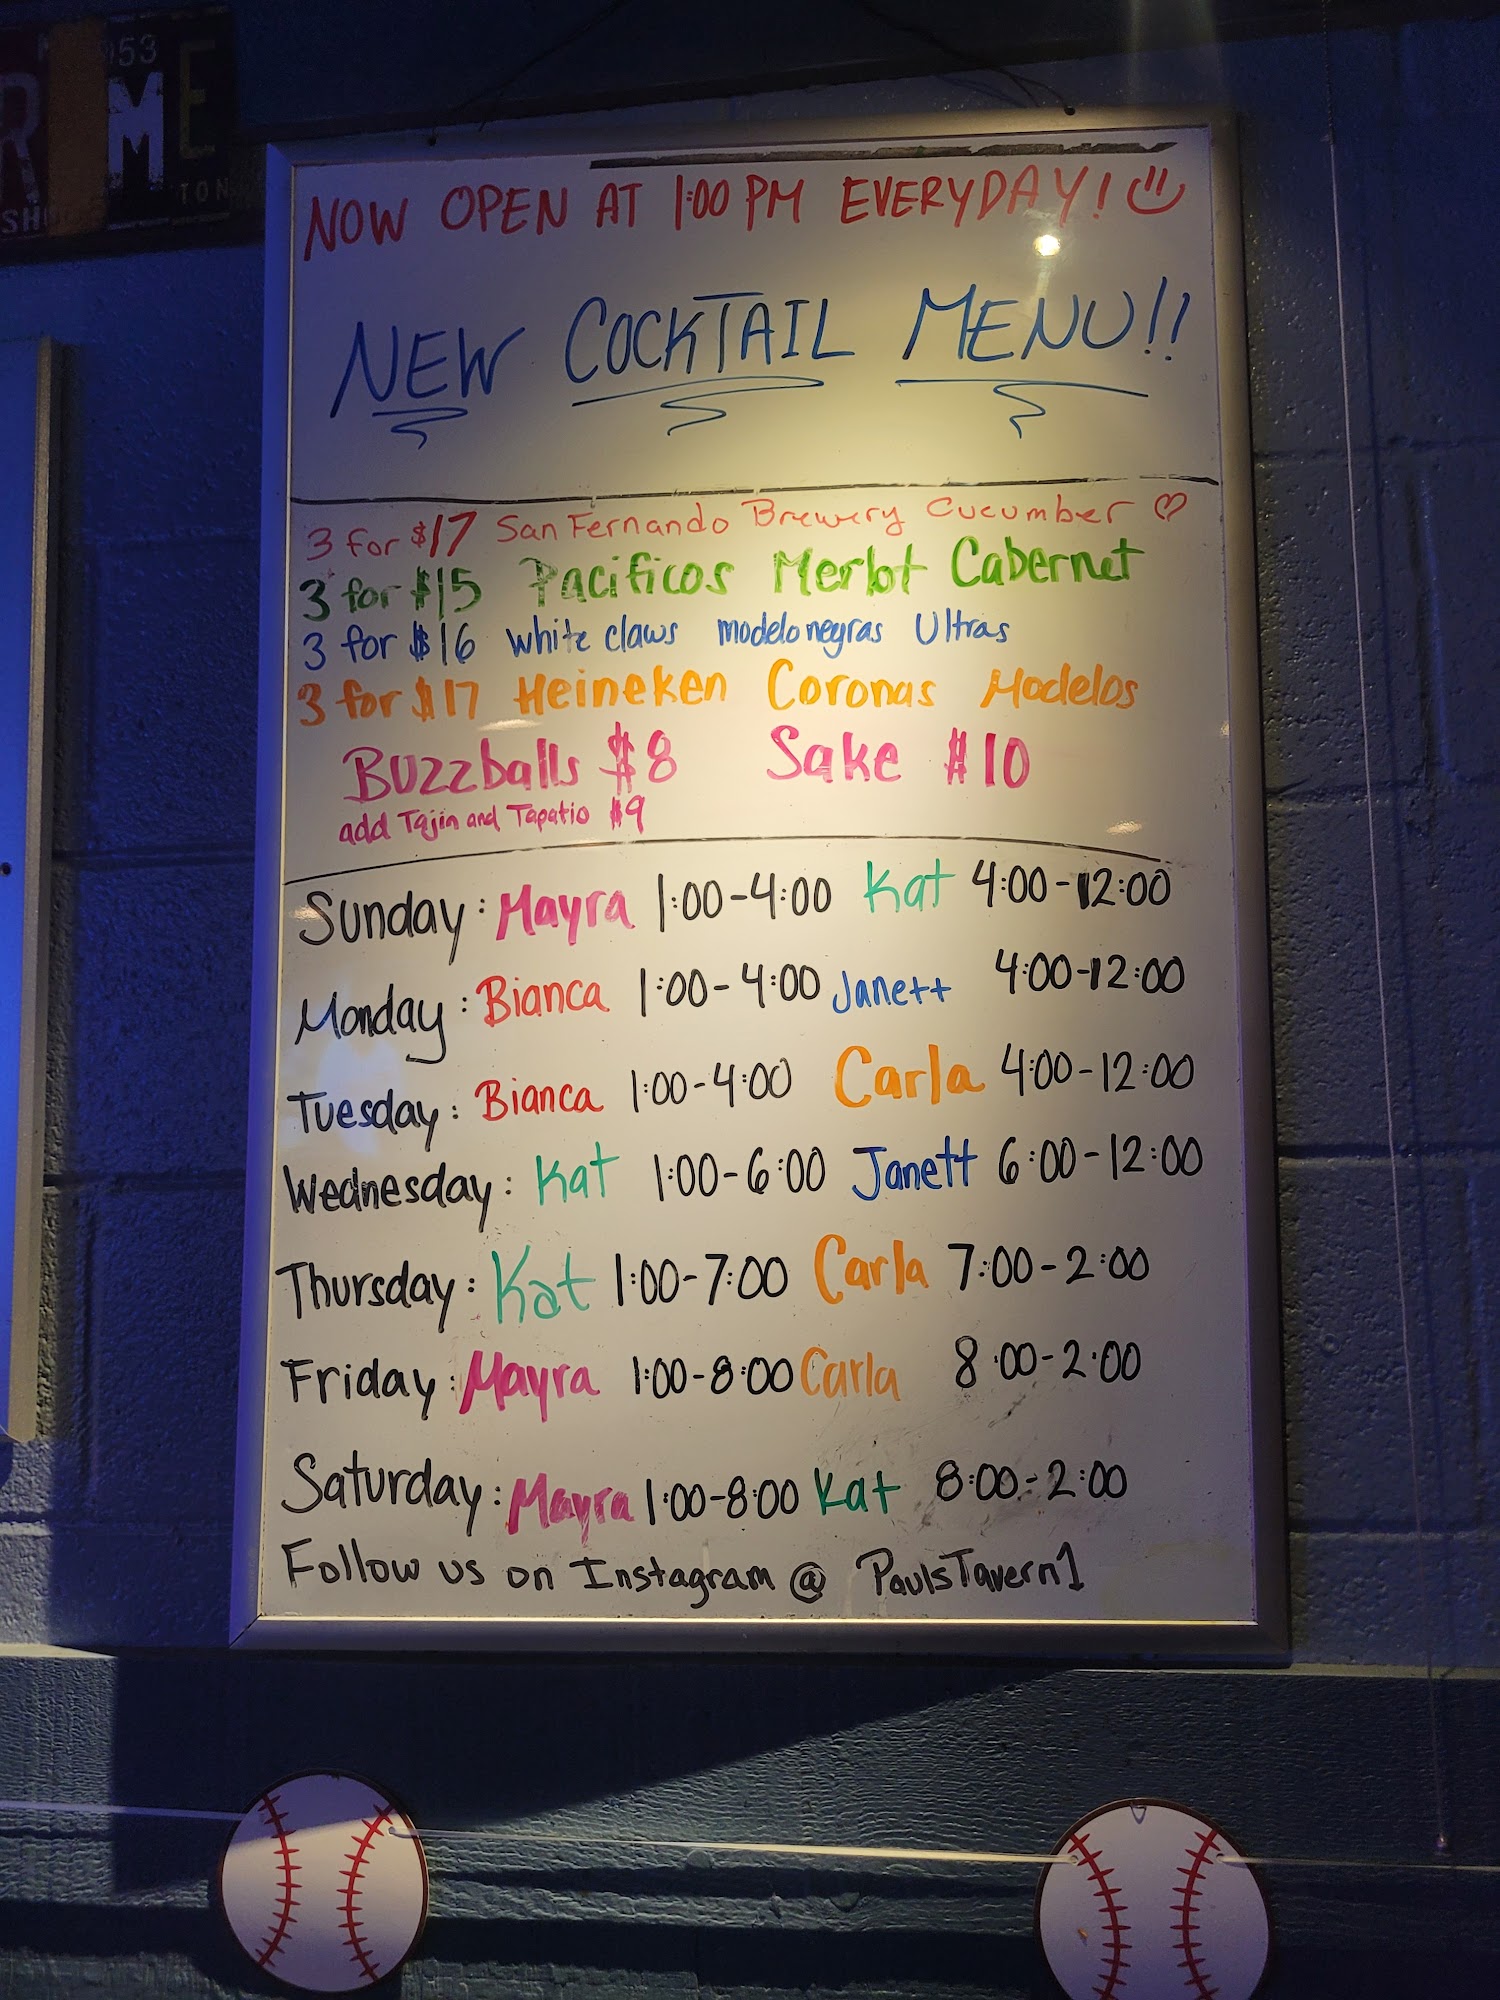 953
R M E
SH TON
NOW OPEN AT 1:00 PM EVERYDAY!
NEW COCKTAIL MENU!!
3 for $17 San Fernando Brewery Cucumber ♡
3 for $15 Pacificos Merlot Cabernet
3 for $16 white claws modelo negras Ultras
3 for $17 Heineken Coronas Modelos
Buzzballs $8 Sake $10
add Tajin and Tapatio $9
Sunday: Mayra 1:00-4:00 Kat 4:00-12:00
Monday: Bianca 1:00-4:00 Janett 4:00-12:00
Tuesday: Bianca 1:00-4:00 Carla 4:00-12:00
Wednesday: Kat 1:00-6:00 Janett 6:00-12:00
Thursday: Kat 1:00-7:00 Carla 7:00-2:00
Friday: Mayra 1:00-8:00 Carla 8:00-2:00
Saturday: Mayra 1:00-8:00 Kat 8:00-2:00
Follow us on Instagram @ PaulsTavern1